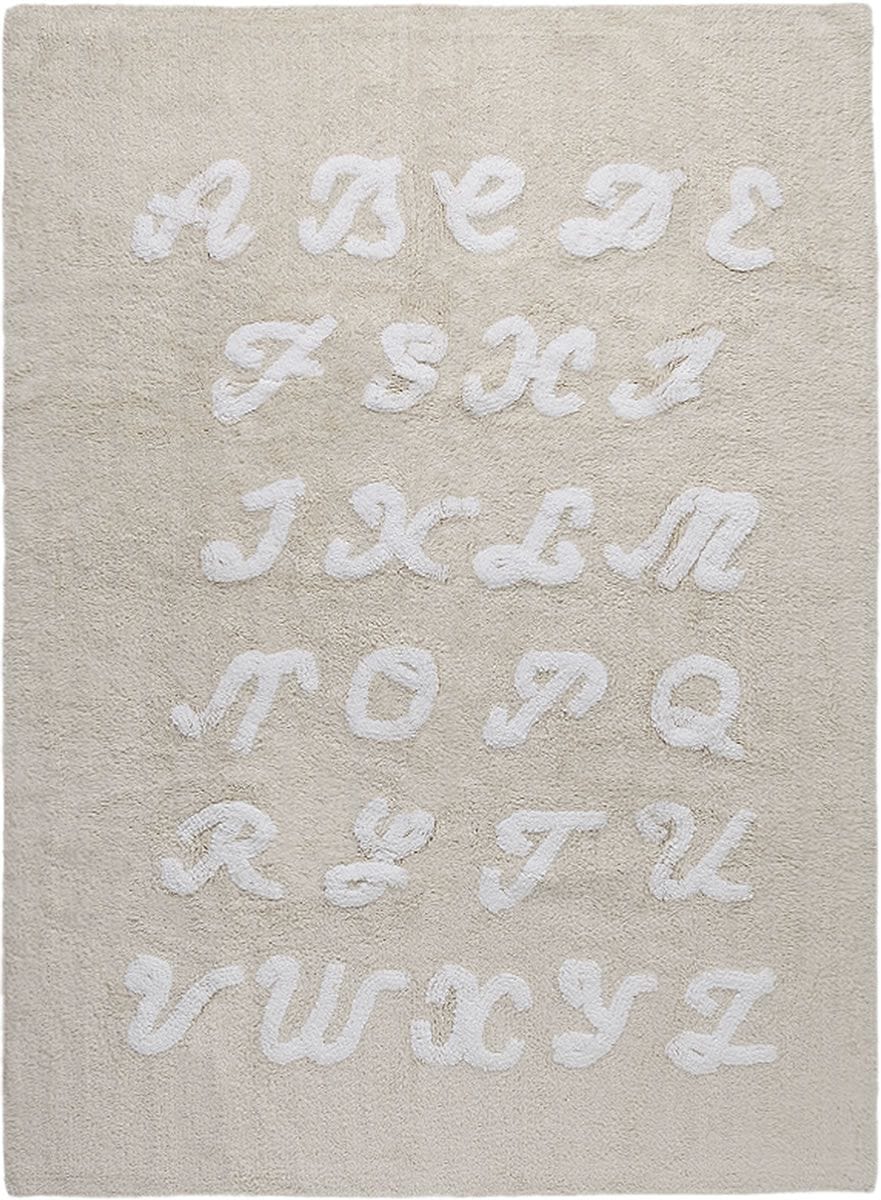 A B C D E
F G H I
J K L M
N O P Q
R S T U
V W X Y Z